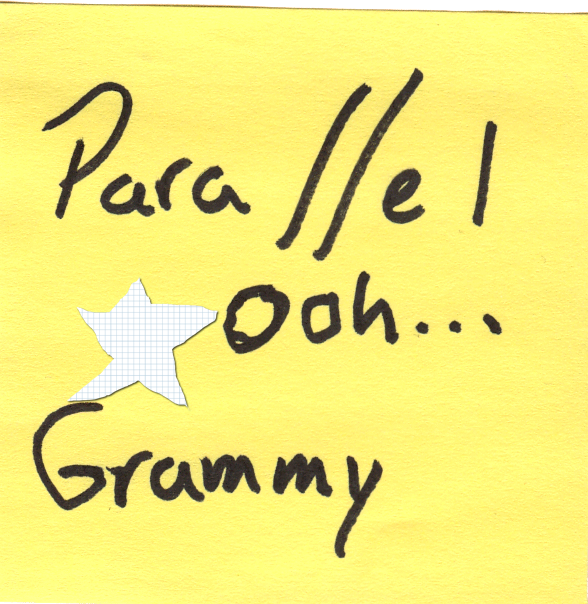 Parallel
Ooh...
Grammy